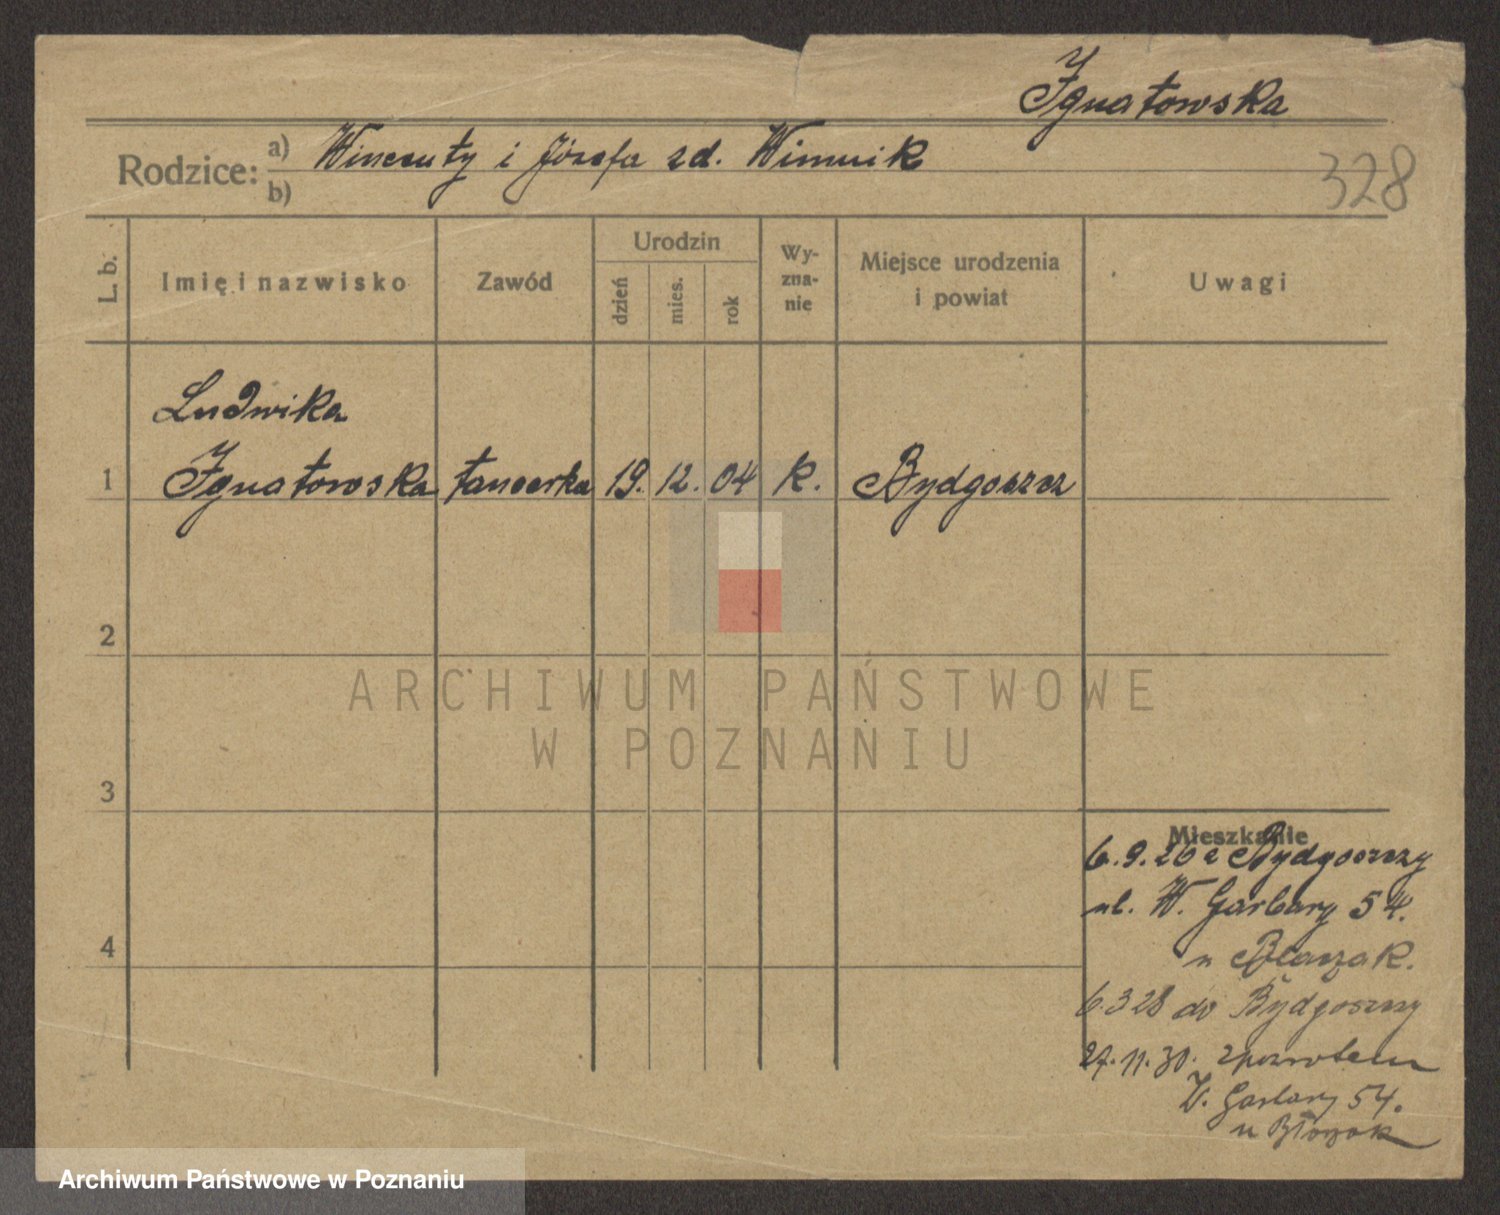 Ignatowska
Rodzice: a) Wincenty i Józefa zd. Wimmik
b)
328
L. b.
Imię i nazwisko
Zawód
Urodzin
dzień
mies.
rok
Wy-
zna-
nie
Miejsce urodzenia
i powiat
Uwagi
Ludwika
1 Ignatowska tancerka 19. 12. 04 k. Bydgoszcz
2
ARCHIWUM PAŃSTWOWE
W POZNANIU
3
Mieszkanie
6.9.26 z Bydgoszczy
ul. W. Garbary 54.
4
u Błaszak.
6.3 28 do Bydgoszczy
27.11.30. zpowrotem
W. Garbary 54.
u
Archiwum Państwowe w Poznaniu